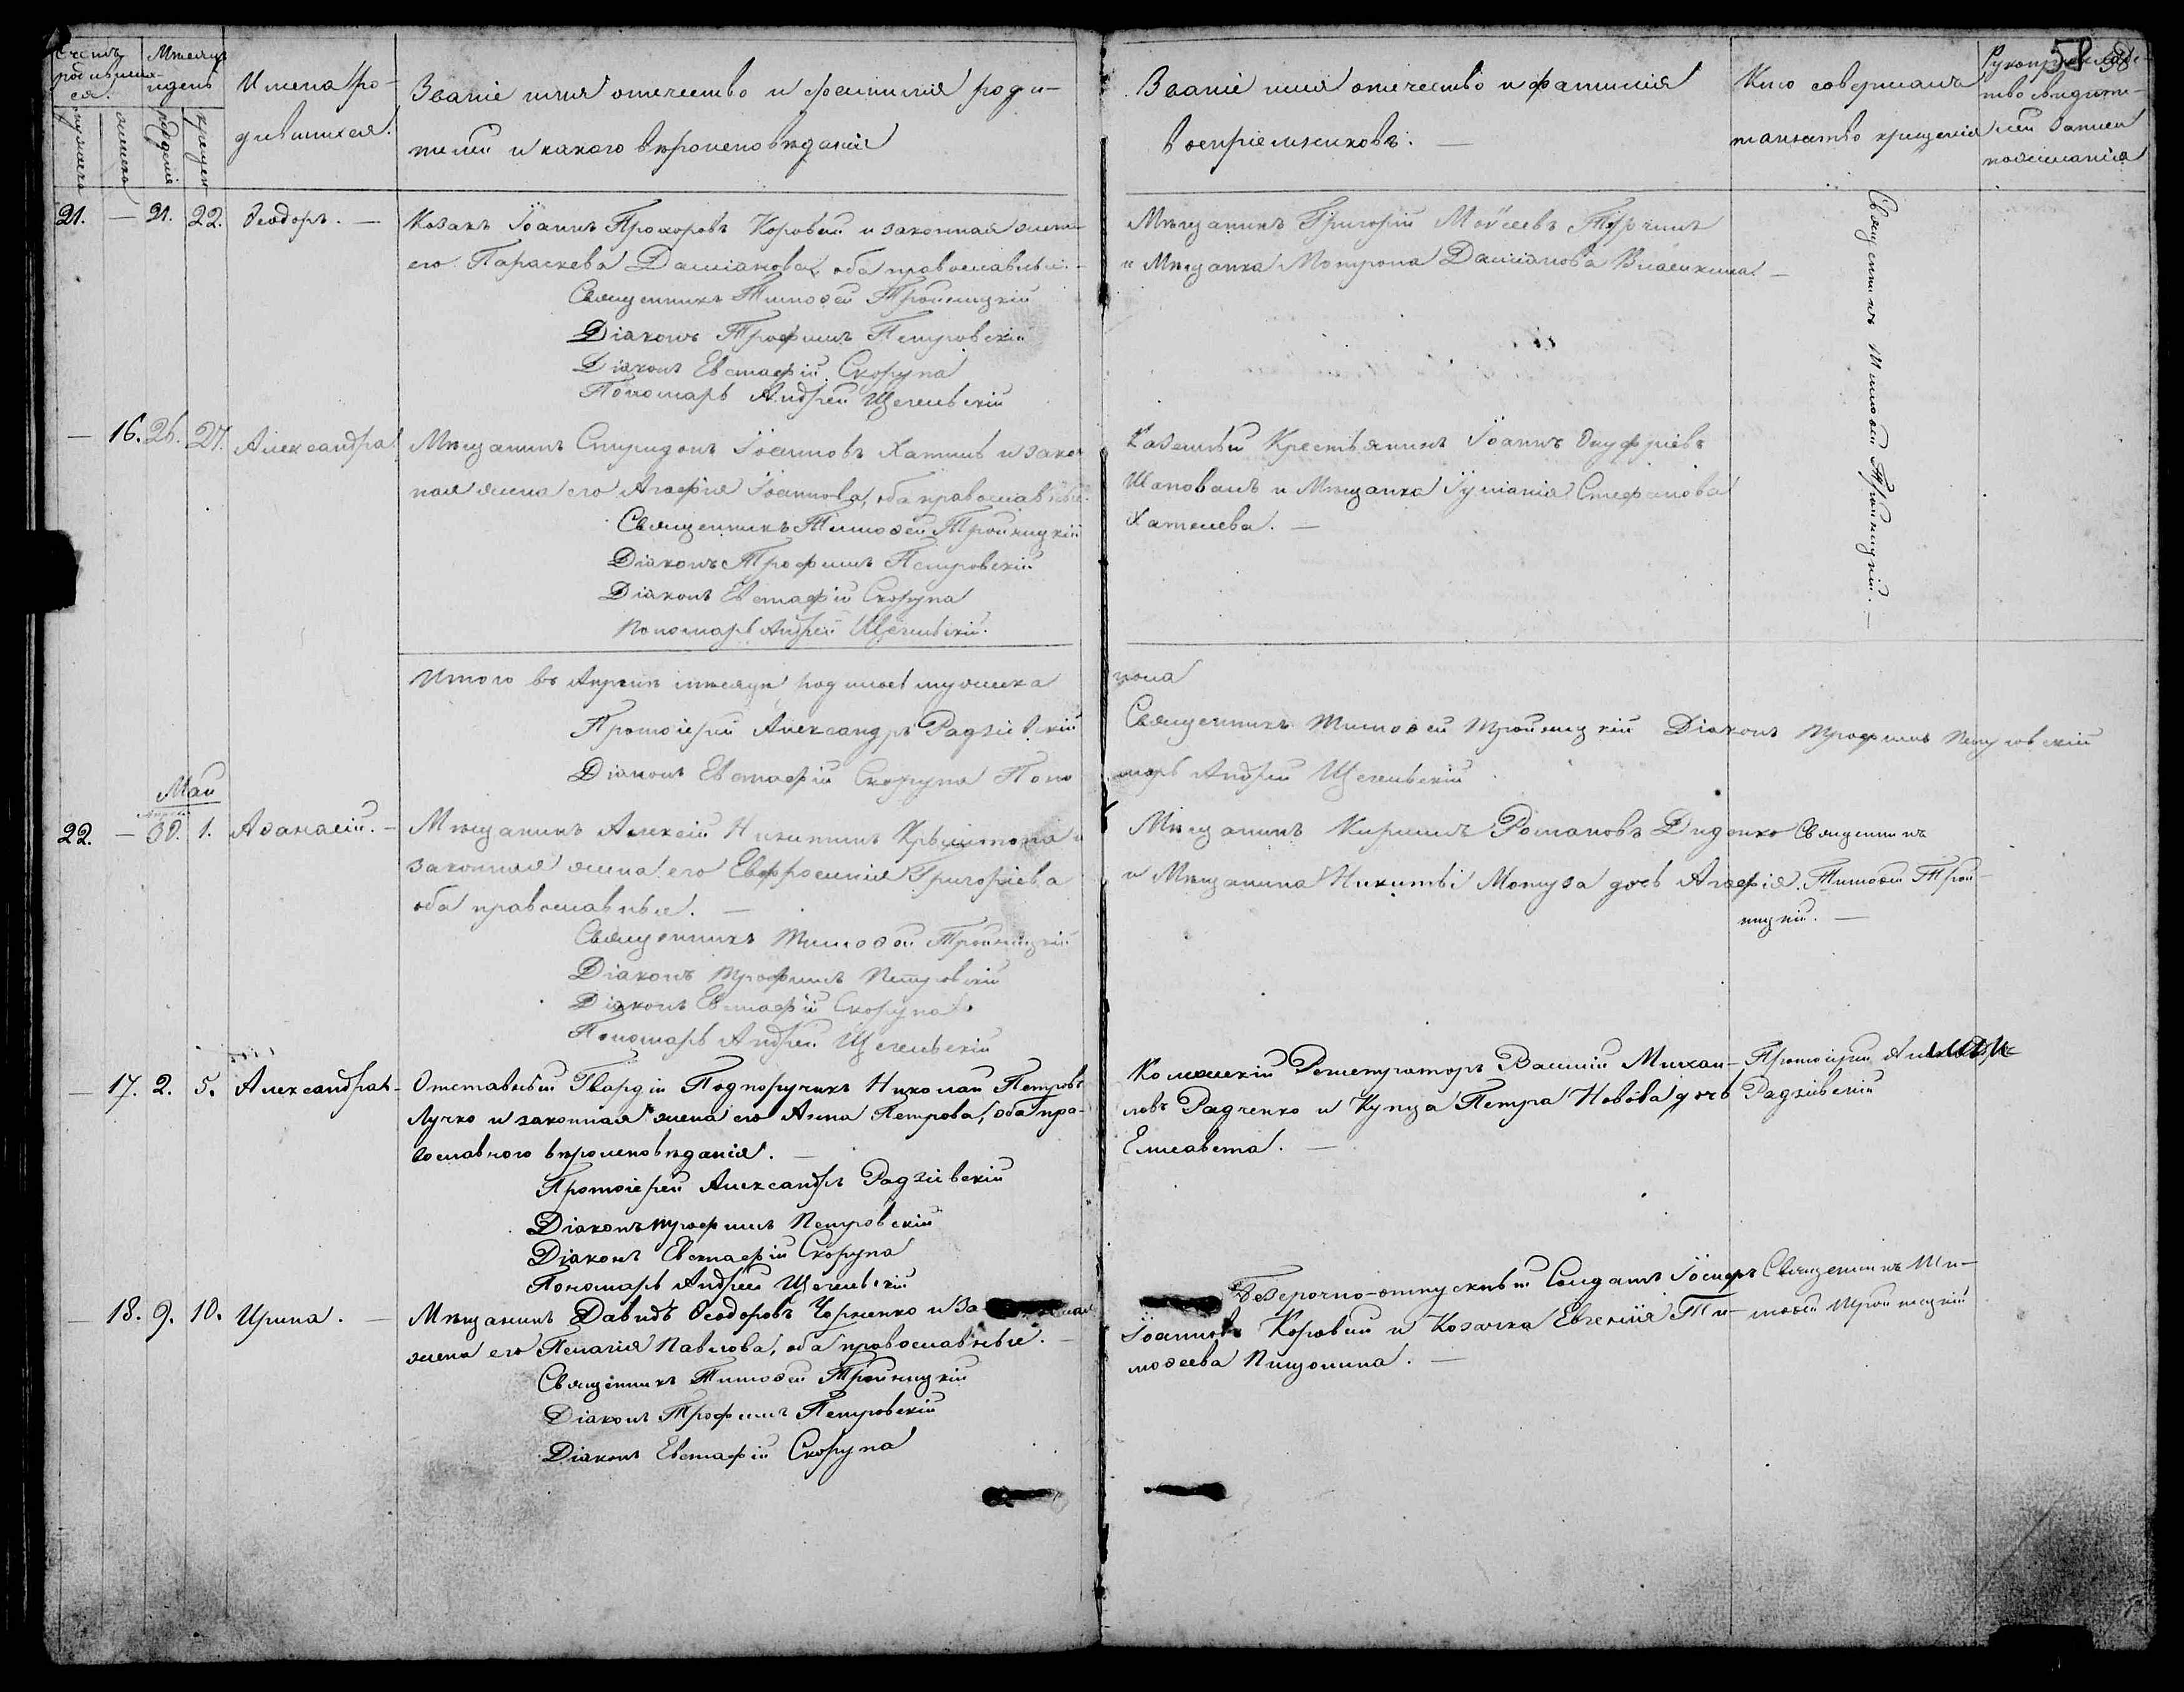 Счетъ родившихся.
Мѣсяцъ и день
мужеска
женска
рожденія
крещен
Имена родившихся.
Званіе имя отечество и фамилія роди-
телей и какого вѣроисповѣданія
Званіе имя отечество и фамилія
воспріемниковъ. —
Кто совершалъ
таинство крещенія
Рукоприкладс-
тво свидѣте-
лей записи
по желанію
58
21. — 21. 22. Ѳеодоръ. —
Козакъ Іоаннъ Прохоровъ Коровай и законная жена
его Параскева Даміанова, оба православные. —
Священникъ Тимоѳей Тройницкій
Діаконъ Трофимъ Петровскій
Діаконъ Евстафій Скорупа
Пономарь Андрей Щегельскій
Мѣщанинъ Григорій Моѵсеевъ
и Мѣщанка Мотрона Даміанова —
Священникъ Тимоѳей Тройницкій. —
— 16. 26. 27. Александра
Мѣщанинъ Спиридонъ Іоанновъ и закон
ная жена его Агафія Іоаннова, оба православные.
Священникъ Тимоѳей Тройницкій
Діаконъ Трофимъ Петровскій
Діаконъ Евстафій Скорупа
Пономарь Андрей Щегельскій.
Казенный Крестьянинъ Іоаннъ Онуфріевъ
Шаповалъ и Мѣщанка Іуліанія Стефанова
Итого въ Апрѣлѣ мѣсяцѣ род мужеска
пола
Протоіерей Александръ Радзіевскій
Священникъ Тимоѳей Тройницкій Діаконъ Трофимъ Петровскій
Діаконъ Евстафій Скорупа Поно
марь Андрей Щегельскій
Май
Апрѣля
22. — 30. 1. Аѳанасій. —
Мѣщанинъ Алексій Никитинъ и
законная жена его Евфросинія Григоріева
оба православные. —
Священникъ Тимоѳей Тройницкій
Діаконъ Трофимъ Петровскій
Діаконъ Евстафій Скорупа
Пономарь Андрей Щегельскій
Мѣщанинъ Кириллъ Романовъ Диденко
и Мѣщанина Никиты Мотуза дочь Агафія.
Священникъ
Тимоѳей Трой-
ницкій. —
— 17. 2. 5. Александра —
Отставный Гвардіи Подпоручикъ Николай Петровъ
Лучко и законная жена его Анна Петрова, оба пра-
вославного вѣроисповѣданія. —
Протоіерей Александръ Радзіевскій
Діаконъ Трофимъ Петровскій
Діаконъ Евстафій Скорупа
Пономарь Андрей Щегельскій
Регистраторъ Василій Михаи-
ловъ Радченко и Купца Петра Новова дочь
Елисавета. —
Протоіерей Александръ
Радзіевскій
— 18. 9. 10. Ирина. —
Мѣщанинъ Давидъ Ѳеодоровъ и за-
жена его Пелагія Павлова, оба православные. —
Священникъ Тимоѳей Тройницкій
Діаконъ Трофимъ Петровскій
Діаконъ Евстафій Скорупа
Безсрочно-отпускный Солдатъ Іосифъ
Іоанновъ Коровай и Козачка Евгенія Ти-
моѳеева —
Священникъ Ти-
моѳей Тройницкій